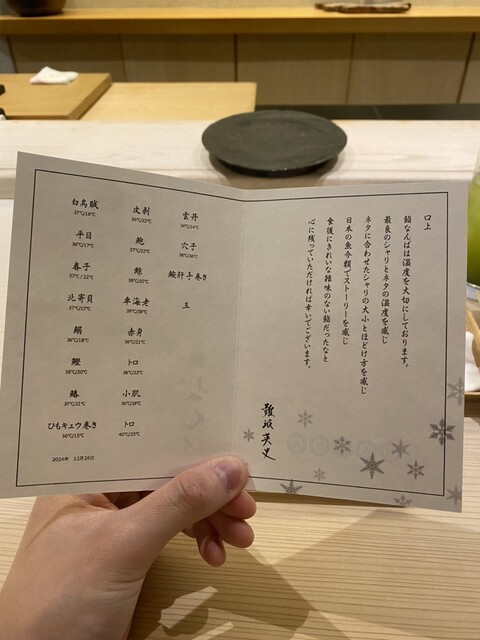 口上
鮨なんばは温度を大切にしております。
最良のシャリとネタの温度を感じ
ネタに合わせたシャリの大小とほどけ方を感じ
日本の魚介類でストーリーを感じ
食後にきれいな雑味のない鮨だったなと
心に残っていただければ幸いでございます。
難波英史
白烏賊
37℃/16℃
平目
36℃/17℃
春子
37℃/22℃
北寄貝
37℃/17℃
36℃/18℃
鰹
38℃/20℃
鰆
37℃/21℃
ひもキュウ巻き
36℃/15℃
皮剥
36℃/22℃
鮑
37℃/22℃
車海老
39℃/39℃
赤身
36℃/21℃
トロ
38℃/23℃
小肌
36℃/19℃
トロ
40℃/25℃
雲丹
36℃/14℃
穴子
38℃/36℃
鮟肝手巻き
玉
2024年 12月26日